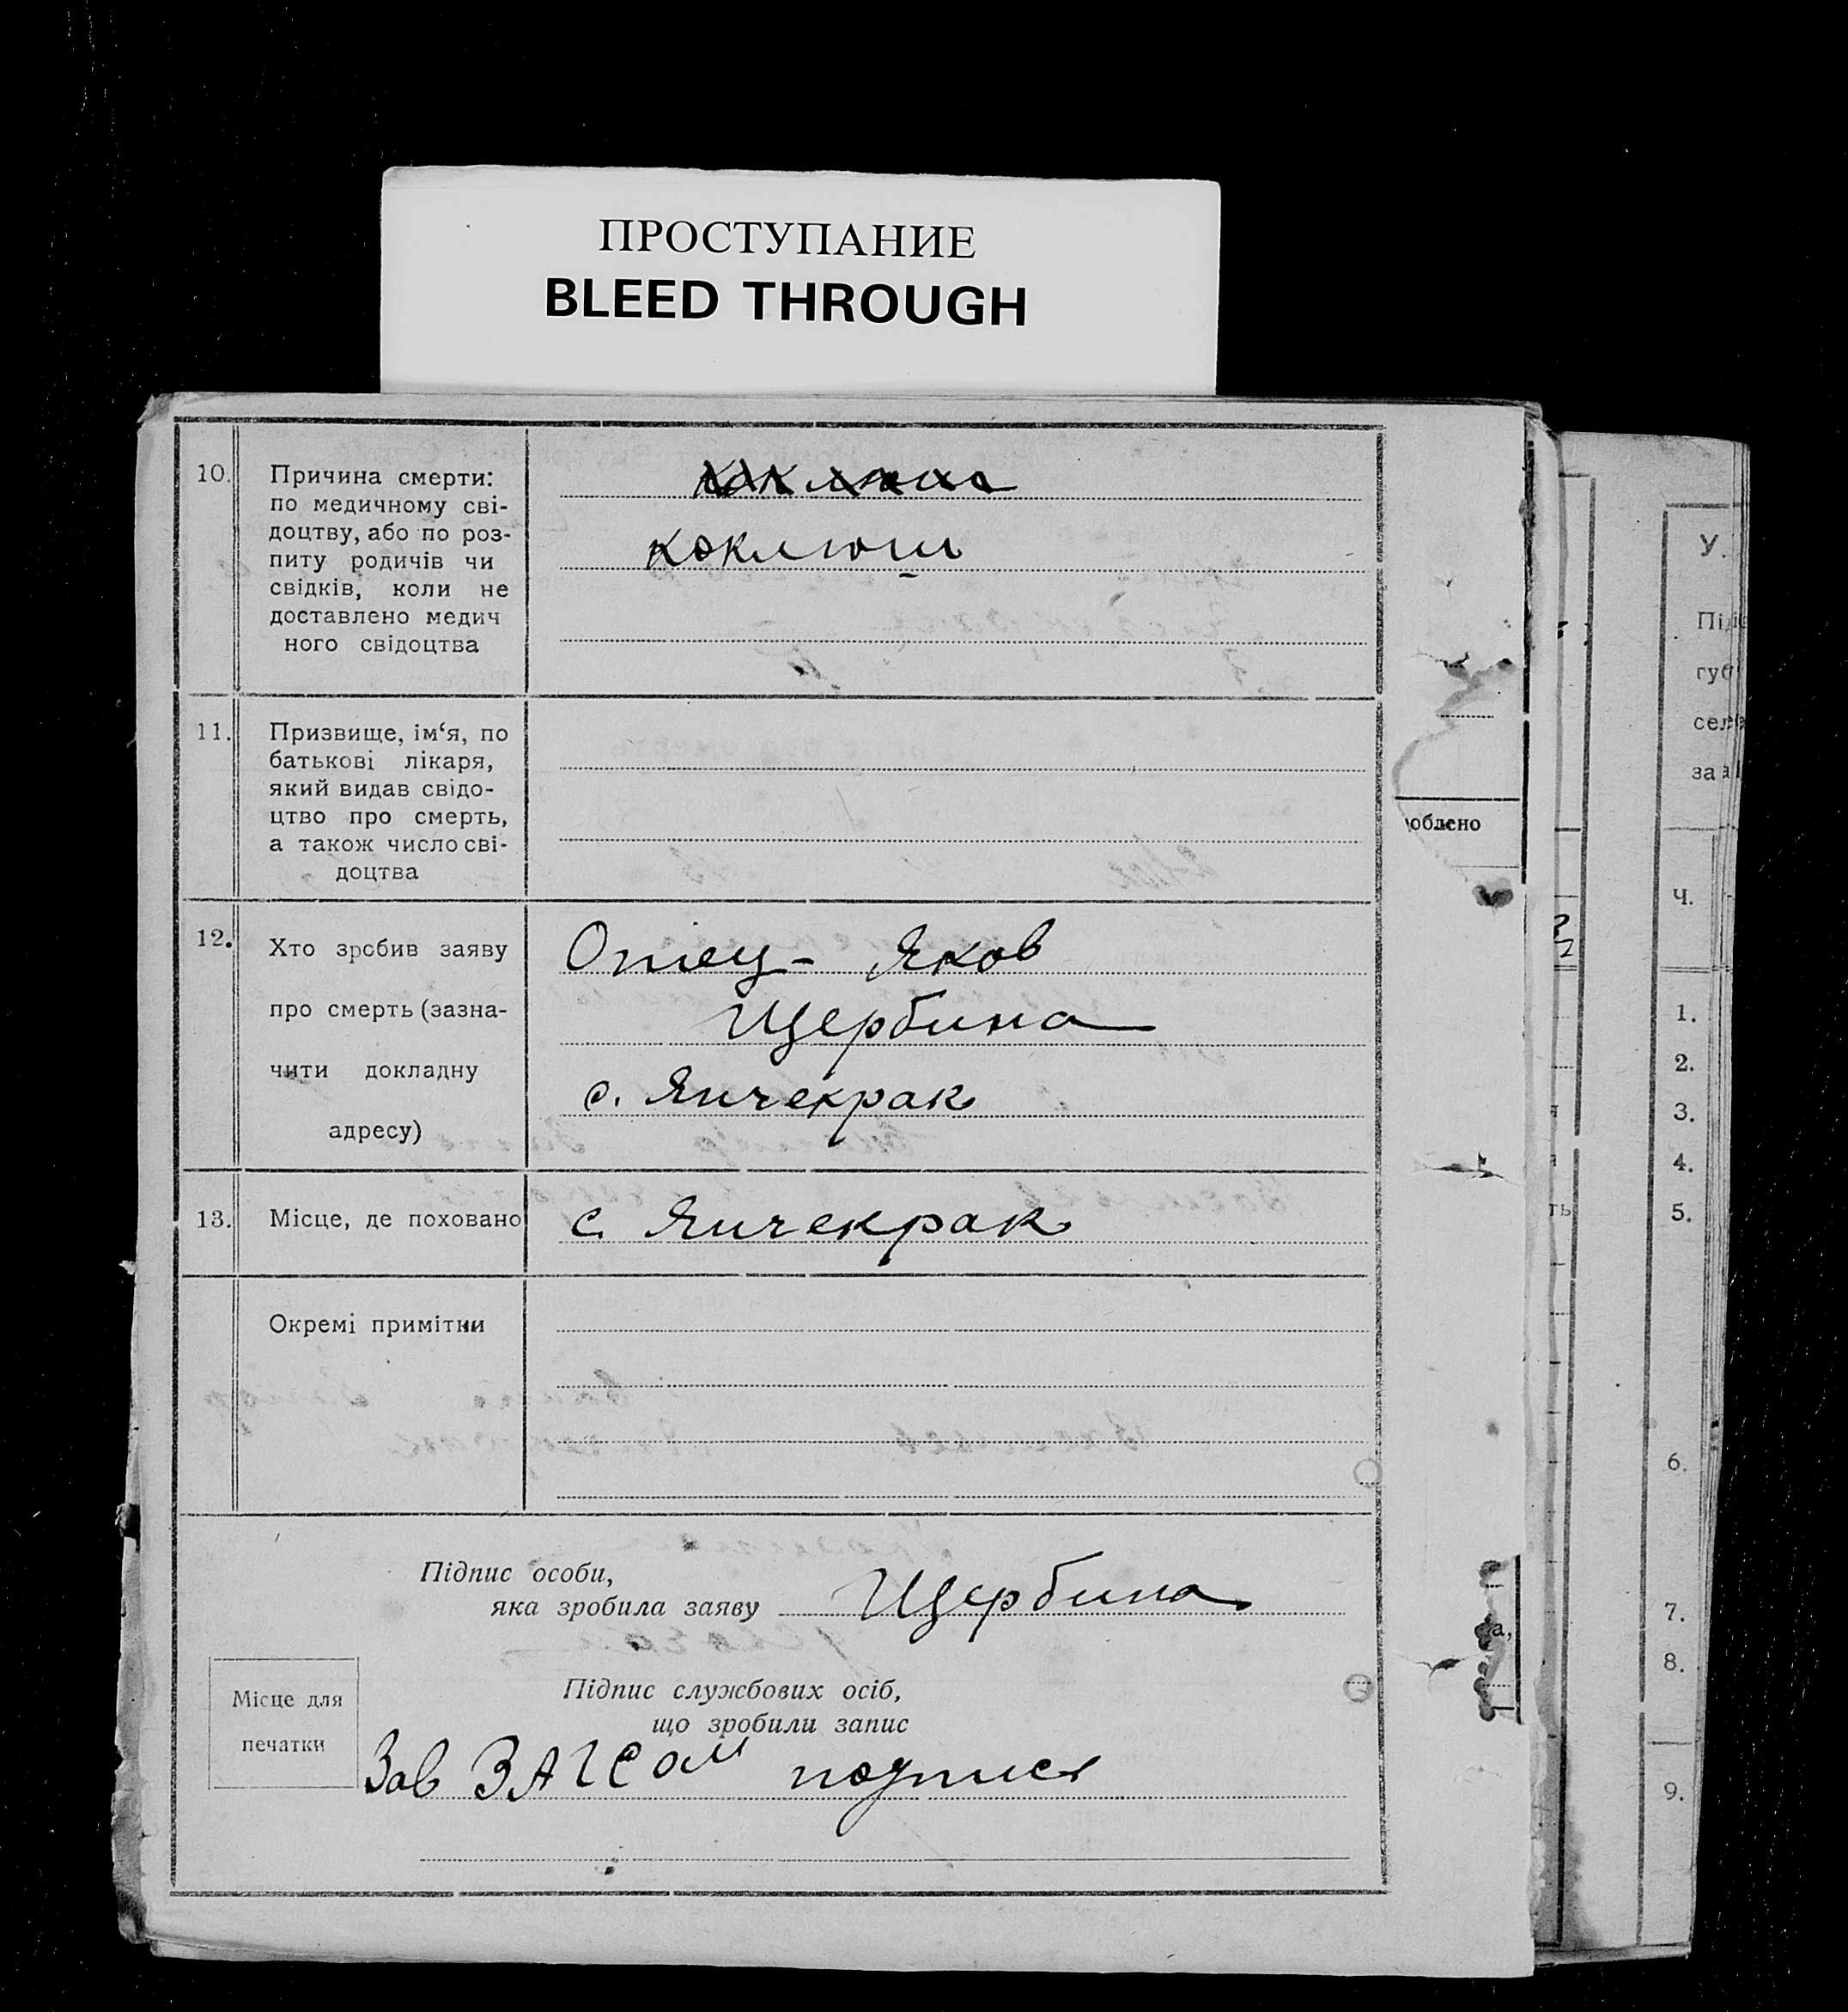 ПРОСТУПАНИЕ
BLEED THROUGH
10.
Причина смерти:
по медичному сві-
доцтву, або по роз-
питу родичів чи
свідків, коли не
доставлено медич
ного свідоцтва
коклюш
11.
Призвище, ім‘я, по
батькові лікаря,
який видав свідо-
цтво про смерть,
а також число сві-
доцтва
12.
Хто зробив заяву
про смерть (зазна-
чити докладну
адресу)
Отец - Яков
Щербина
с. Янчекрак
13.
Місце, де поховано
с. Янчекрак
Окремі примітки
Підпис особи,
яка зробила заяву Щербина
Місце для
печатки
Підпис службових осіб,
що зробили запис
Зав ЗАГСом подписи
облено
У.
Піді
губ
селе
за
Ч.
1.
2.
3.
4.
5.
6.
7.
8.
9.
ть
а,